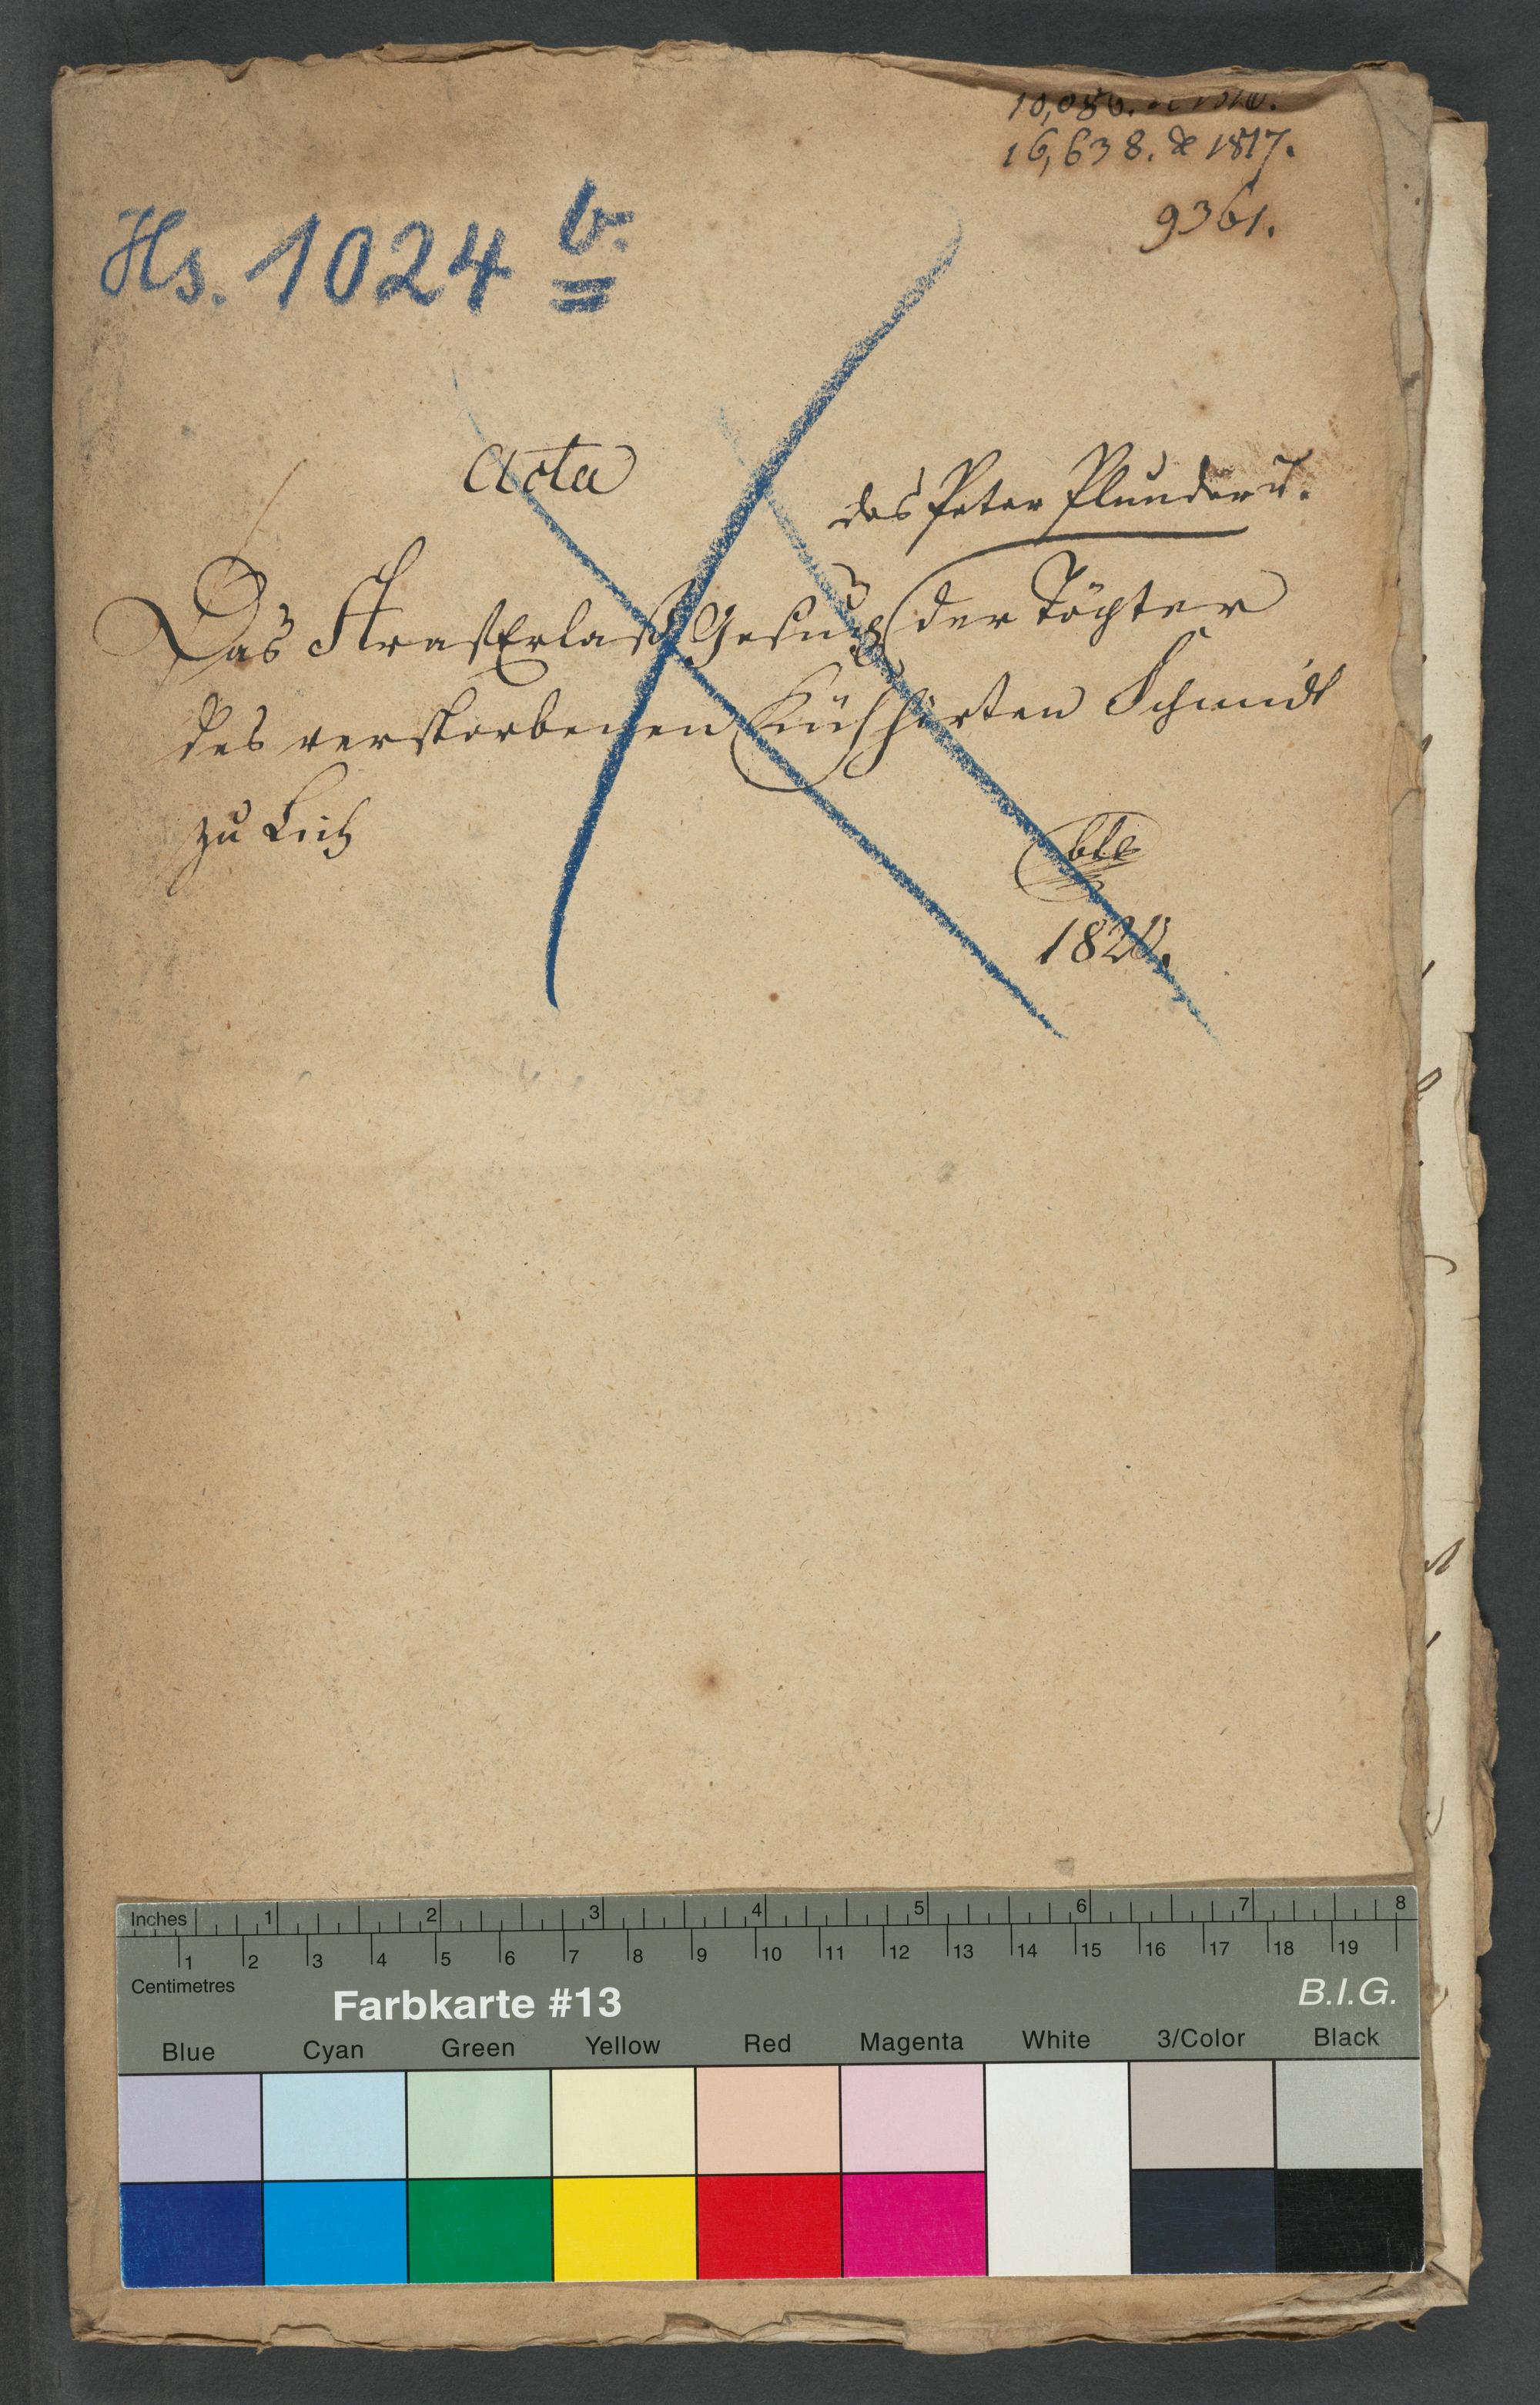 16,638. de 1817.
9361.
Hs. 1024 b.
Acta
des Peter Plunder u.
Das StrafErlaß Gesuch der Töchter
des verstorbenen Kühhirten Schmidt
zu Lich
1820.
Inches 1 2 3 4 5 6 7 8
1 2 3 4 5 6 7 8 9 10 11 12 13 14 15 16 17 18 19
Centimetres
Farbkarte #13 B.I.G.
Blue Cyan Green Yellow Red Magenta White 3/Color Black